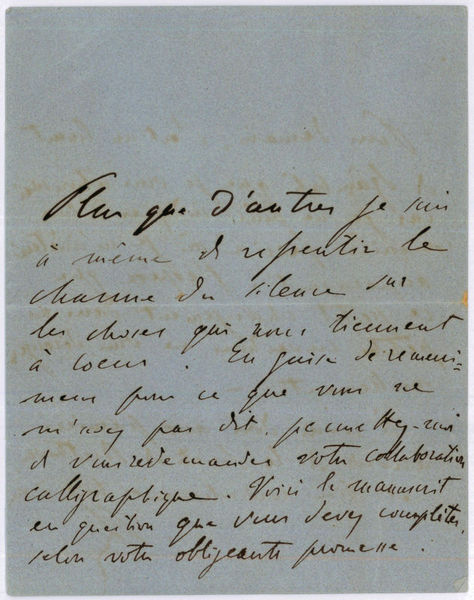 Plus que d'autres je suis
à même de ressentir le
charme du silence sur
les choses qui nous tiennent
à coeur. En guise de remerci-
ment pour ce que vous ne
m'avez pas dit, permettez-moi
de vous redemander votre collaboration
calligraphique. Voici le manuscrit
en question que vous devez compléter,
selon votre obligeante promesse.